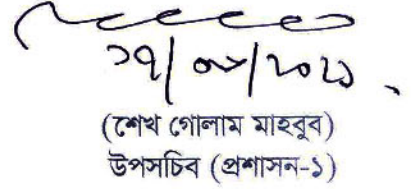 ১৭/০৮/২০২১
(শেখ গোলাম মাহবুব)
উপসচিব (প্রশাসন-১)